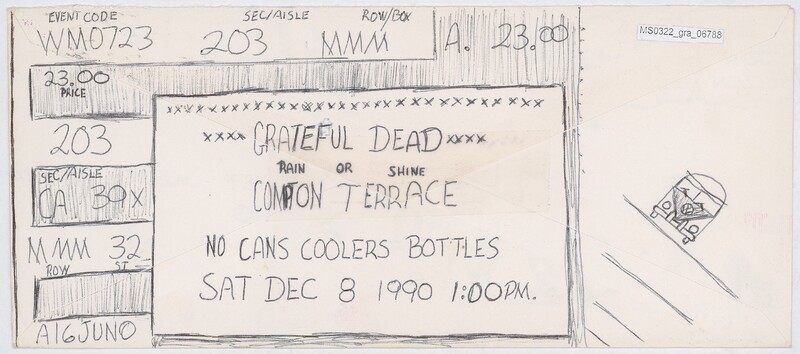 EVENT CODE SEC/AISLE ROW/BOX
WM0723 203 MMM A. 23.00
MS0322_gra_06788
23.00
PRICE
203
SEC/AISLE
CA 39X
MMM 32
ROW ST
A16JUNO
xxxxxxxxxxxxxxxxxxxxxxxxxxxxxxxxx
xxxx GRATEFUL DEAD xxxx
RAIN OR SHINE
COMPTON TERRACE
NO CANS COOLERS BOTTLES
SAT DEC 8 1990 1:00PM.